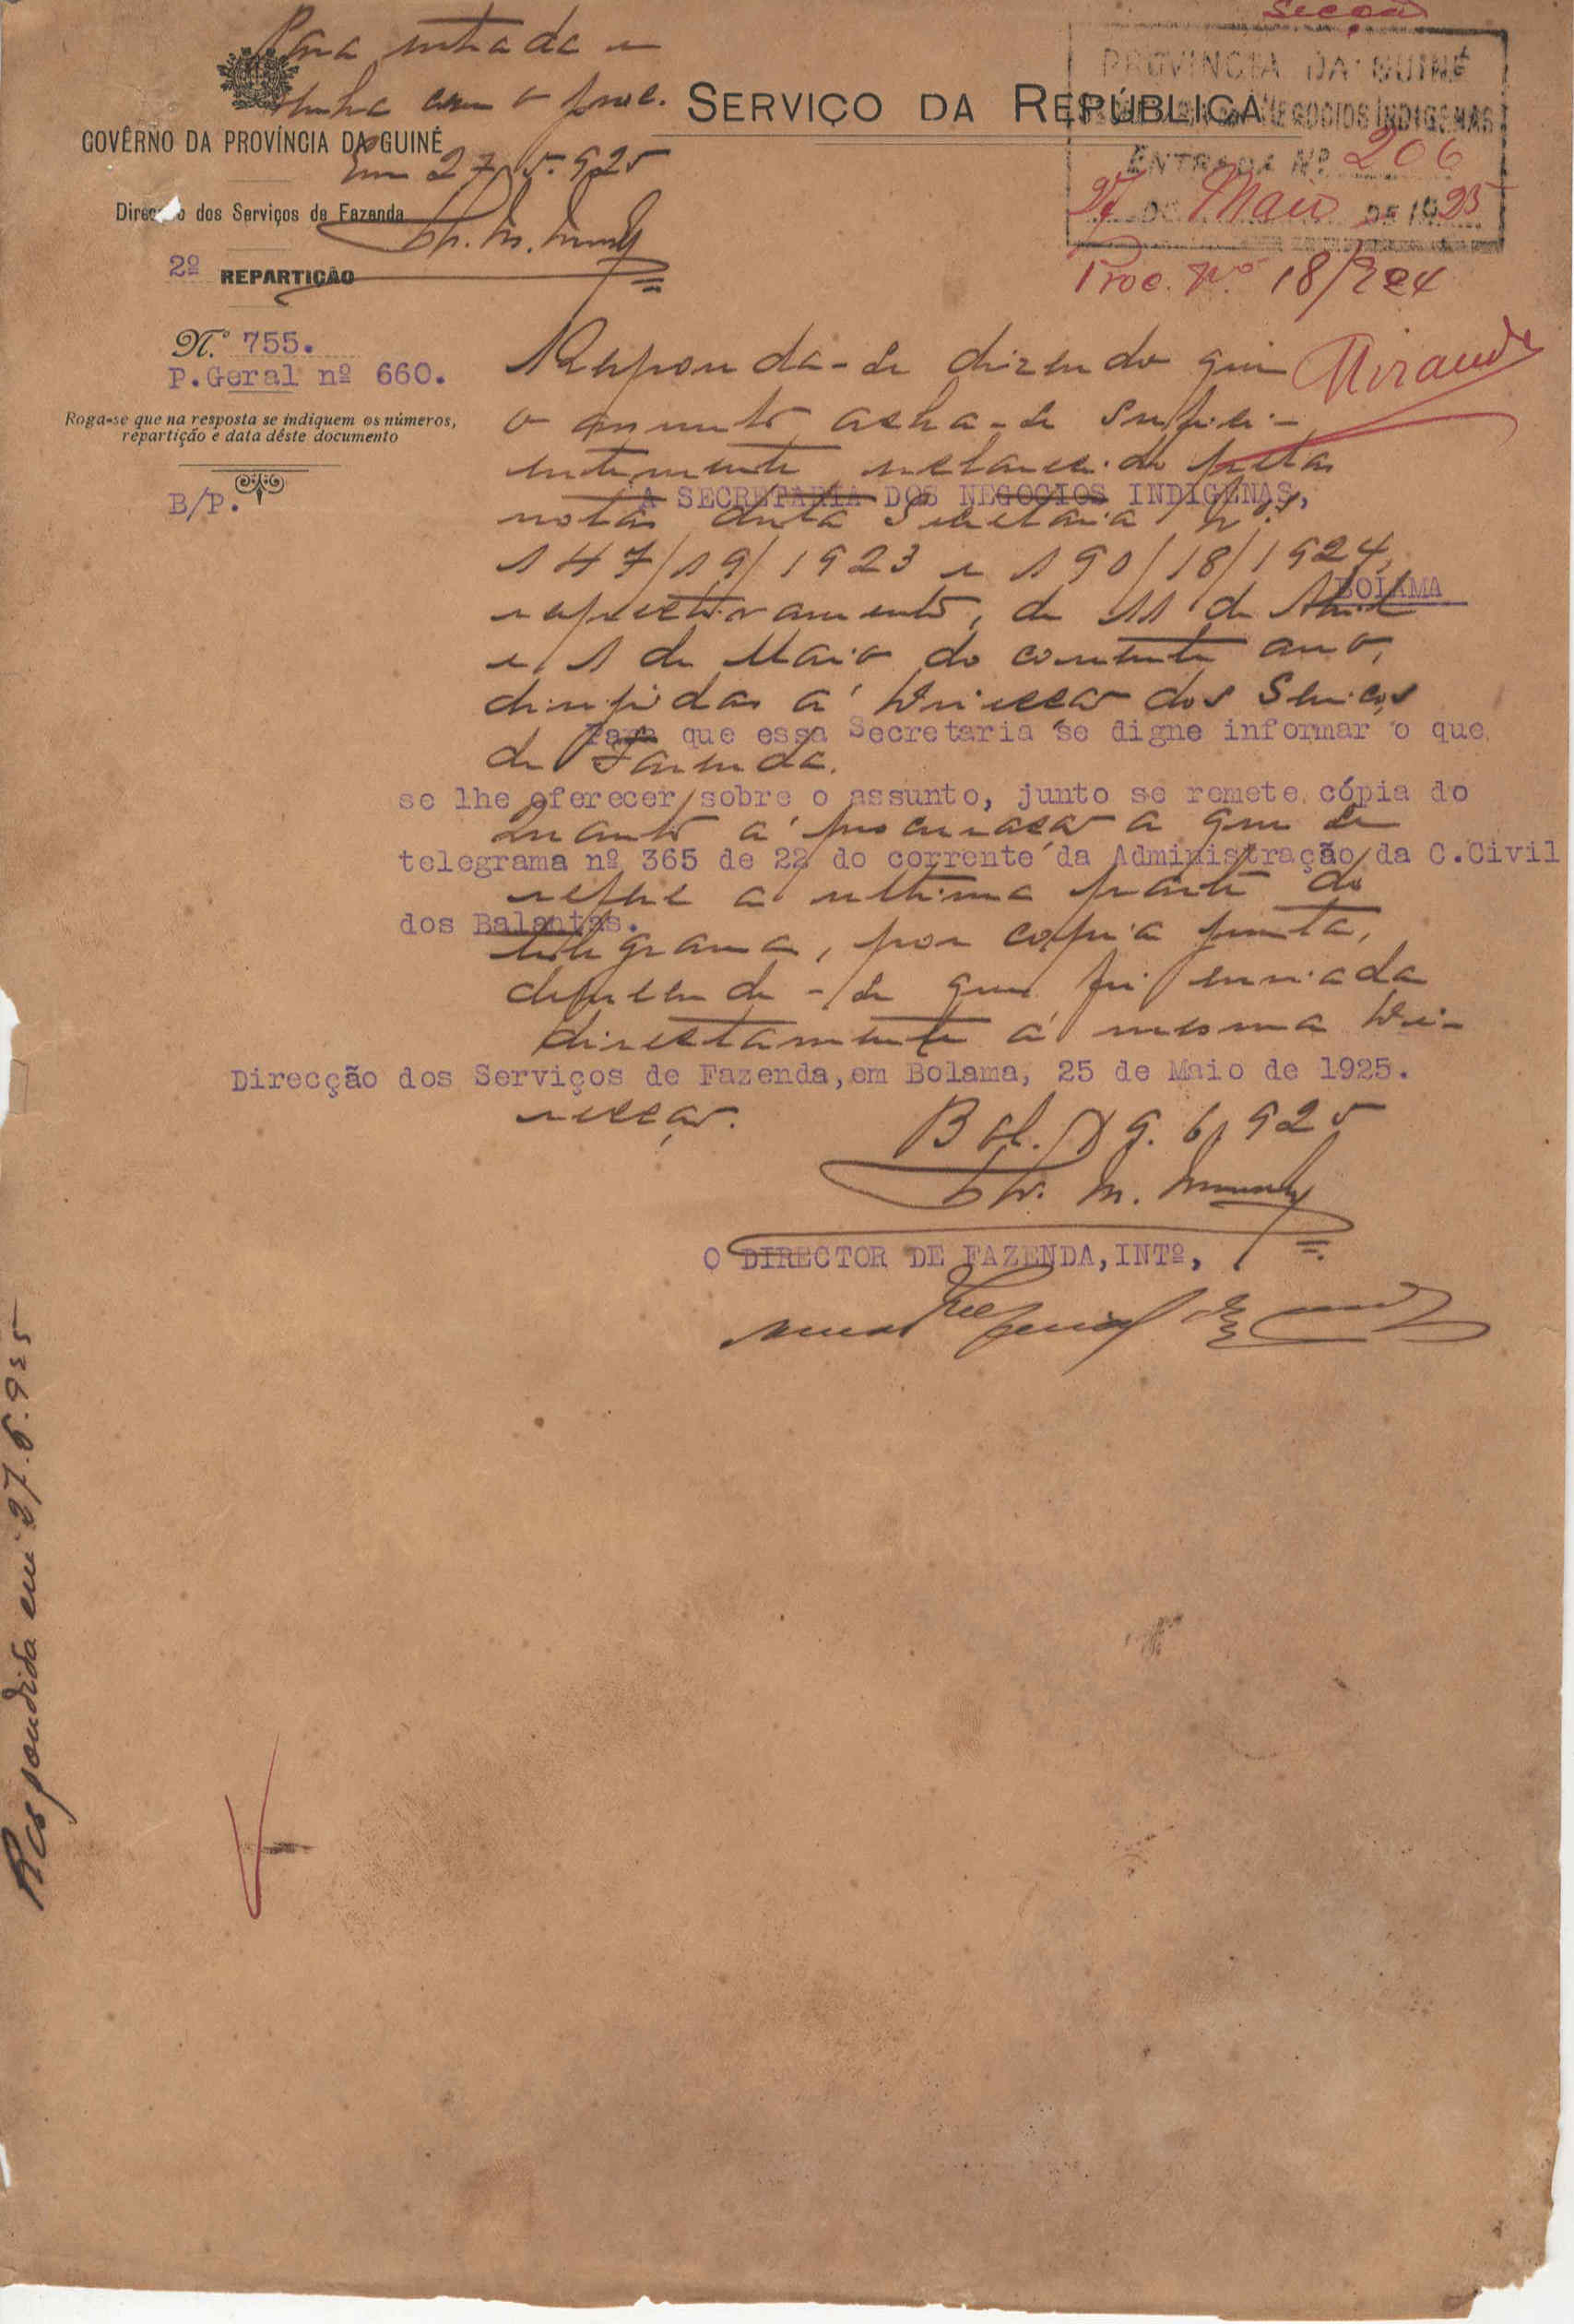 Secção
Para entrada e
venha com o proc.
Em 27-5-925
GOVÊRNO DA PROVÍNCIA DA GUINÉ
Direcção dos Serviços de Fazenda
2º REPARTIÇÃO
SERVIÇO DA REPÚBLICA
PROVINCIA DA GUINÉ
NEGOCIOS INDIGENAS
ENTRADA Nº 206
27 DE Maio DE 1925
Proc. Nº 18/924
Miranda
N.º 755.
P.Geral nº 660.
Roga-se que na resposta se indiquem os números,
repartição e data dêste documento
B/P.
Responda-se dizendo que
o assunto acha-se sufici-
entemente esclarecido pelas
notas desta Secretaria Nos
147/19/1923 e 190/18/1924,
respectivamente, de 11 de Abril
e 1 de Maio do corrente ano,
dirigidas á Direcção dos Serviços
de Fazenda.
Quanto á procuração a que se
refere a ultima parte do
telegrama, por copia junta,
depreende-se que foi enviada
directamente á mesma Di-
recção.
Bol. 9.6.925
A SECRETARIA DOS NEGOCIOS INDIGENAS,
BOLAMA
Para que essa Secretaria se digne informar o que
se lhe oferecer sobre o assunto, junto se remete cópia do
telegrama nº 365 de 22 do corrente da Administração da C.Civil
dos Balantas.
Direcção dos Serviços de Fazenda, em Bolama, 25 de Maio de 1925.
O DIRECTOR DE FAZENDA, INTº,
Respondida em 27.6.925